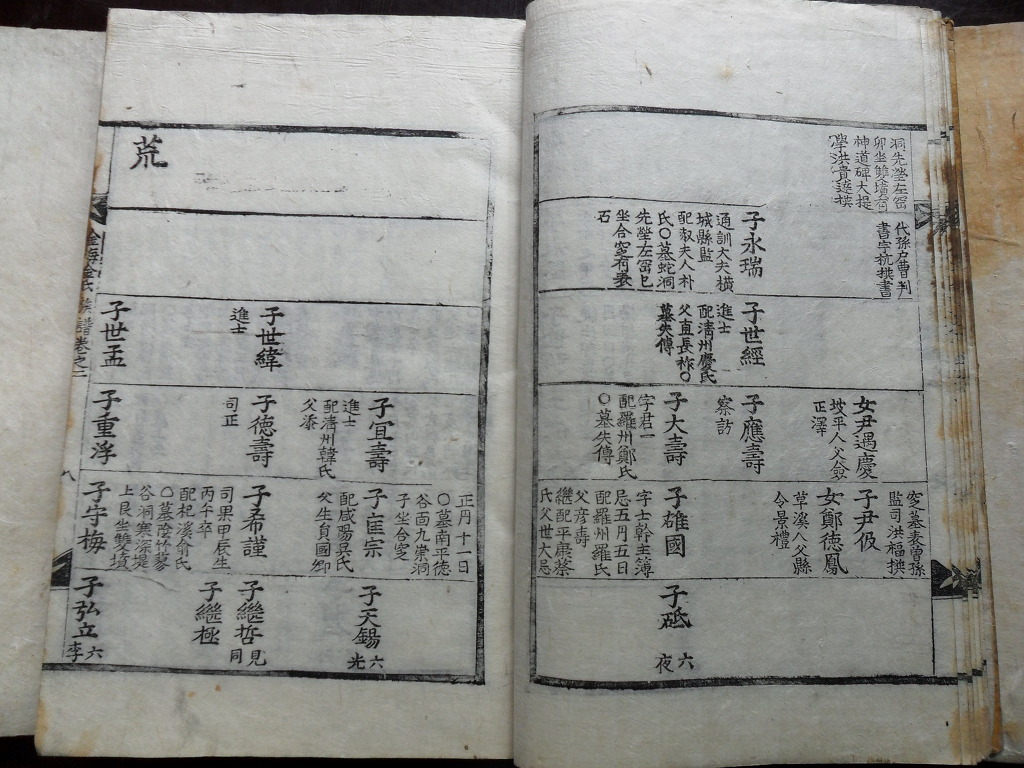 洞先塋左冨
卯坐雙墳有
神道碑大提
學洪貴達撰
代孫左曹判
書字抗撰書
子永瑞
通訓大夫橫
城縣監
配淑夫人朴
氏○墓蛇洞
先塋左冨巳
坐合窆有表
石
子世經
進士
配淸州慶氏
父直長祚○
墓失傳
女尹遇慶
坡平人父僉
正澤
子應壽
察訪
子大壽
字君一
配羅州鄭氏
○墓失傳
窆墓表曾孫
監司洪福撰
子尹伋
女鄭德鳳
草溪人父縣
令景禮
子雄國
字士幹主簿
忌五月五日
配羅州羅氏
父彦壽
継配平康蔡
氏父世大忌
子砥
六
夜
荒
子世緯
進士
子世孟
子宜壽
進士
配淸州韓氏
父添
子德壽
司正
子重浮
正月十一日
○墓南平德
谷面九萬洞
子坐合窆
子匡宗
配咸陽吳氏
父生員國卿
子希謹
司果甲辰生
丙午卒
配杞溪兪氏
○墓陰竹蓼
谷洞寒深堤
上艮坐雙墳
子守梅
子天錫
六
光
子継哲
見
同
子継極
子弘立
六
李
金海金氏族譜卷之二
八